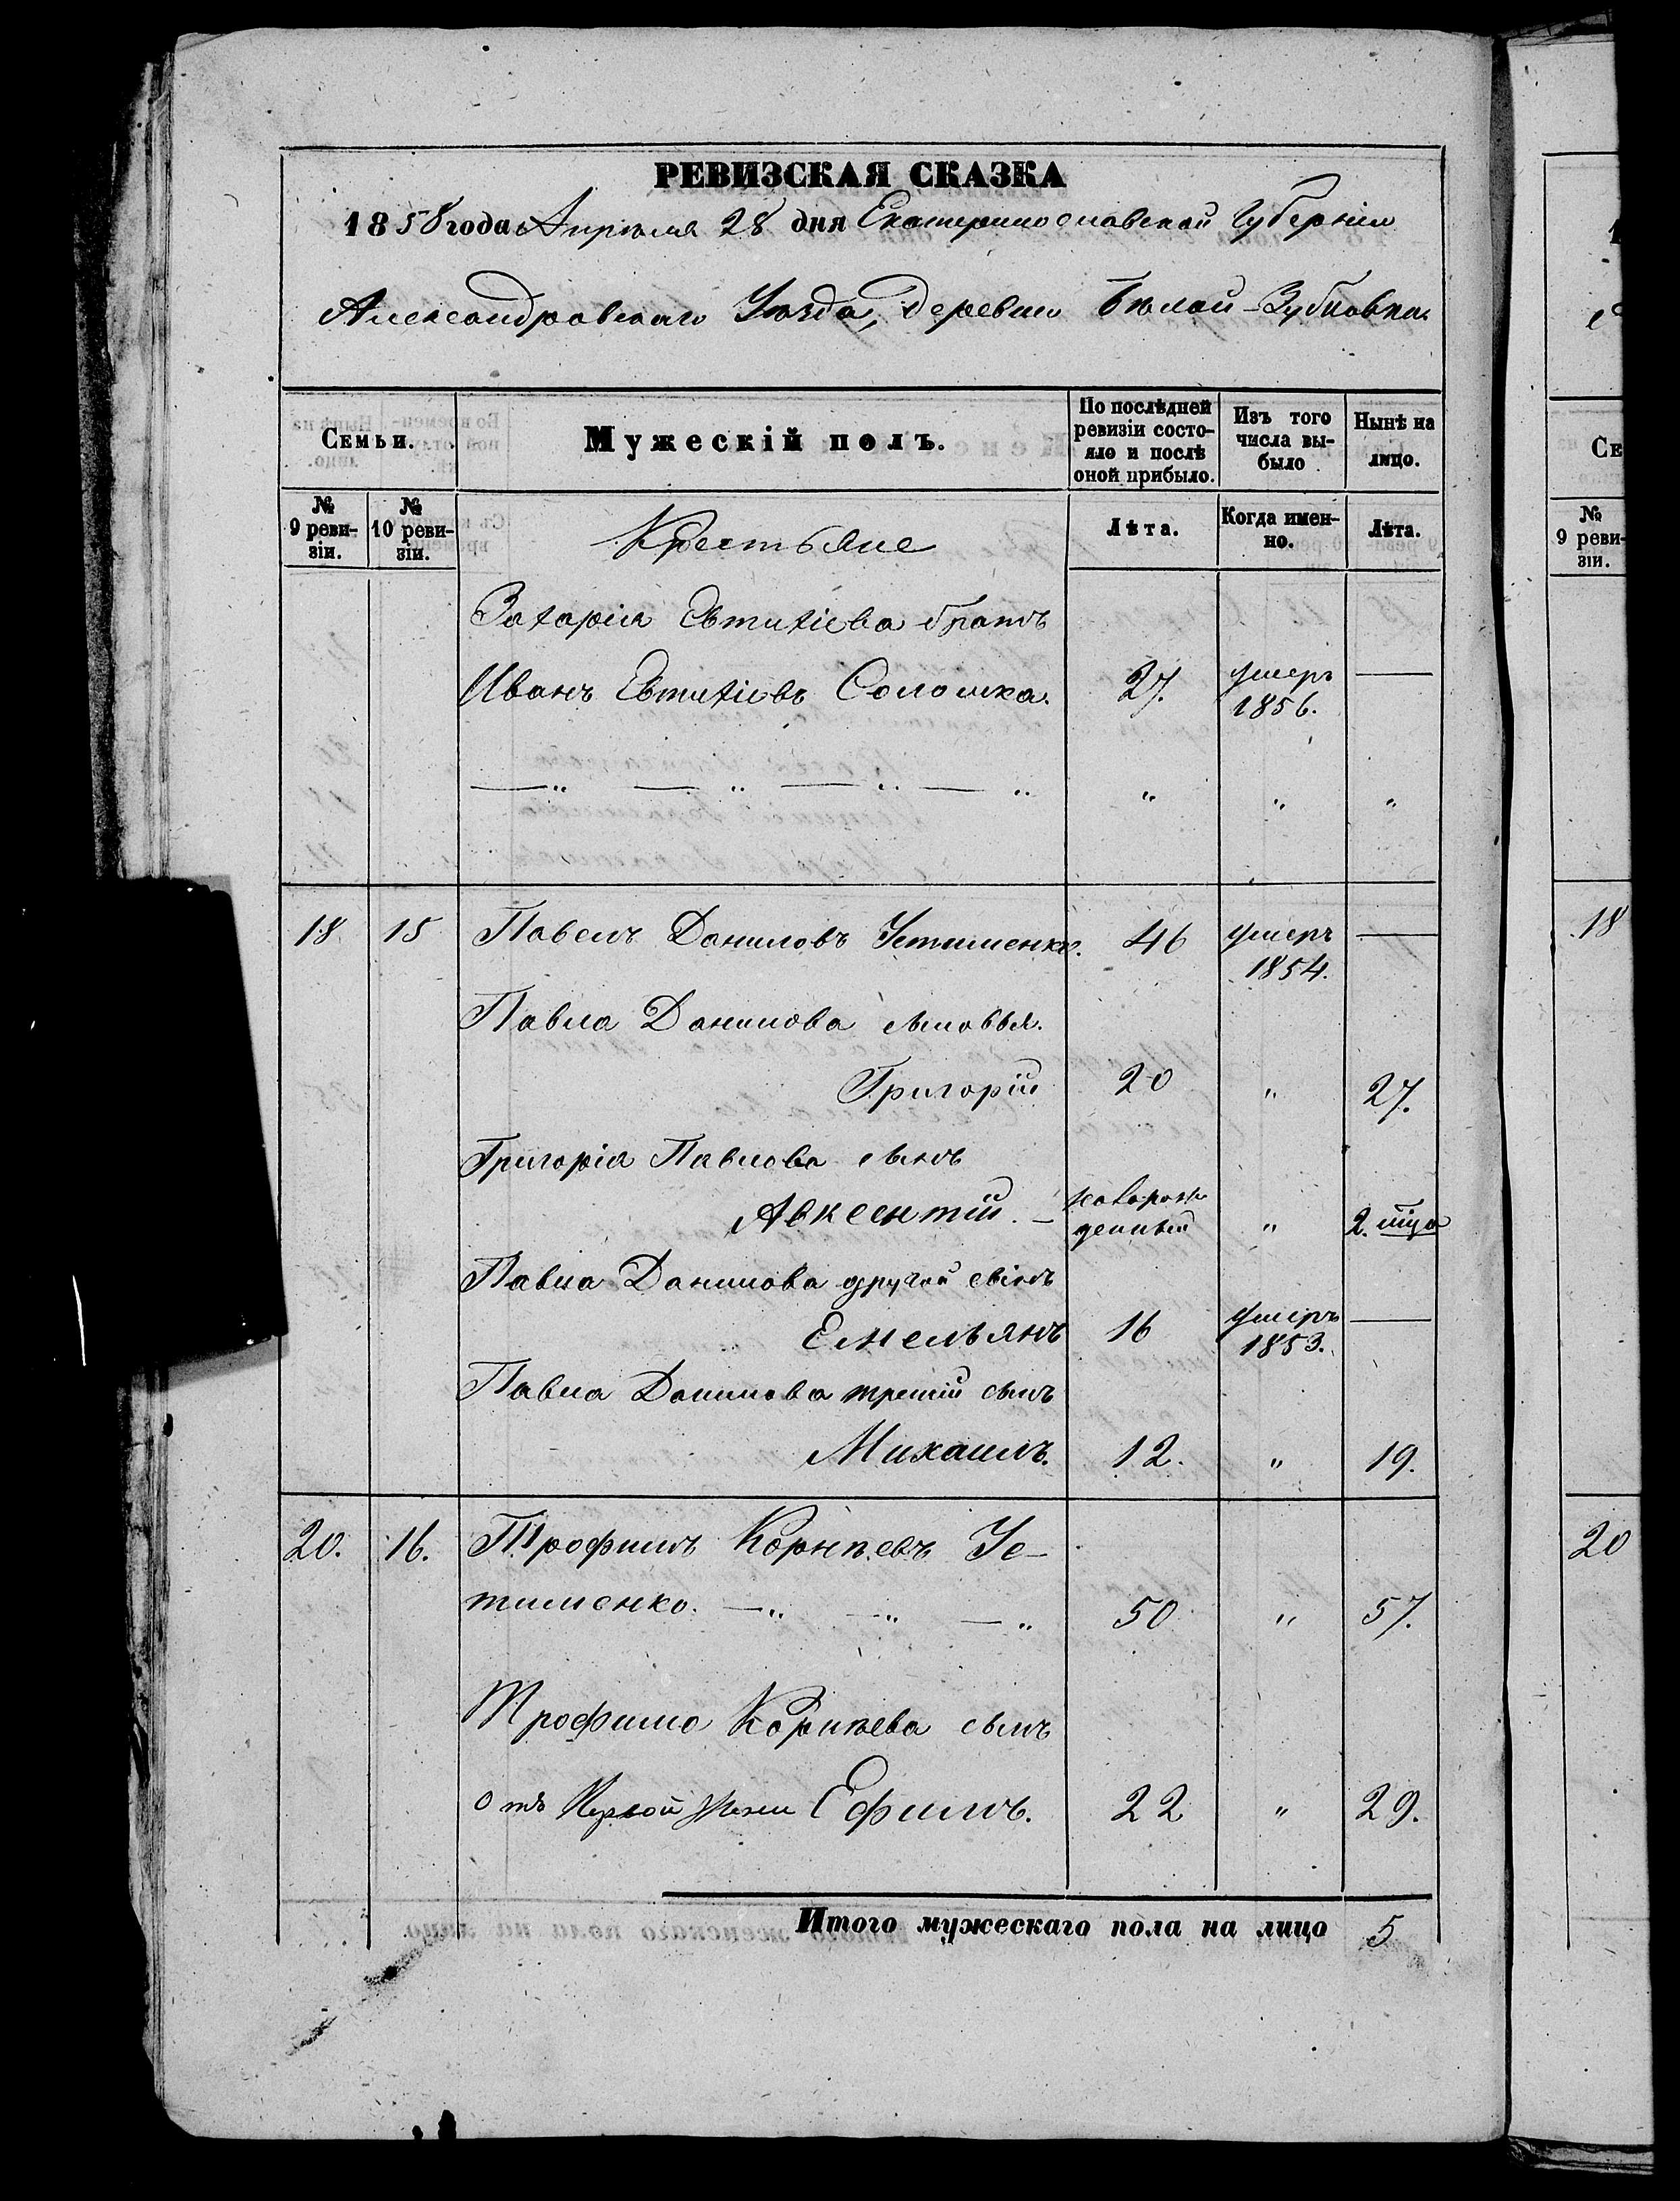 РЕВИЗСКАЯ СКАЗКА
1858 года Апреля 28 дня Екатеринославской Губернiи
Александровскаго Уезда, деревни Белой-Зубковки
Семьи.
Мужескiй полъ.
По послѣдней ревизiи состояло и послѣ оной прибыло.
Изъ того числа выбыло
Нынѣ на лицо.
№ 9 ревизiи.
№ 10 ревизiи.
Крестьяне
Лѣта.
Когда именно.
Лѣта.
Захарiя Евтихiева братъ
Иванъ Евтихiевъ Соломка. 27. умеръ 1856. —
— „ — „ — „ — „ „ „ „
18 15 Павелъ Даниловъ Устименко. 46 умеръ 1854. —
Павла Данилова сыновья.
Григорiй 20 „ 27.
Григорiя Павлова сынъ
Авксентiй. — новорожденный „ 2. мца
Павла Данилова другой сынъ
Емельянъ 16 умеръ 1853. —
Павла Данилова третiй сынъ
Михаилъ. 12. „ 19.
20. 16. Трофимъ Корнѣевъ Ус-
тименко. — „ — „ — „ 50 „ 57.
Трофима Корнѣева сынъ
отъ Первой жены Ефимъ. 22 „ 29.
Итого мужескаго пола на лицо 5
1
Се
№ 9 ревизiи.
18
20